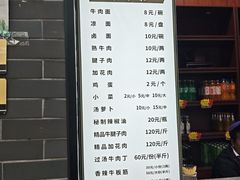 牛肉面 8元/碗
凉面 8元/盘
卤面 10元/碗
熟牛肉 10元/两
腱子肉 12元/两
加花肉 12元/两
鸡蛋 2元/个
小菜 2元/小 5元/中 10元/大
汤萝卜 10元/小 15元/中
秘制辣椒油 20元/瓶
精品牛腱子肉 120元/斤
精品加花肉 120元/斤
过汤牛肉丁 60元/份(半斤)
香辣牛板筋